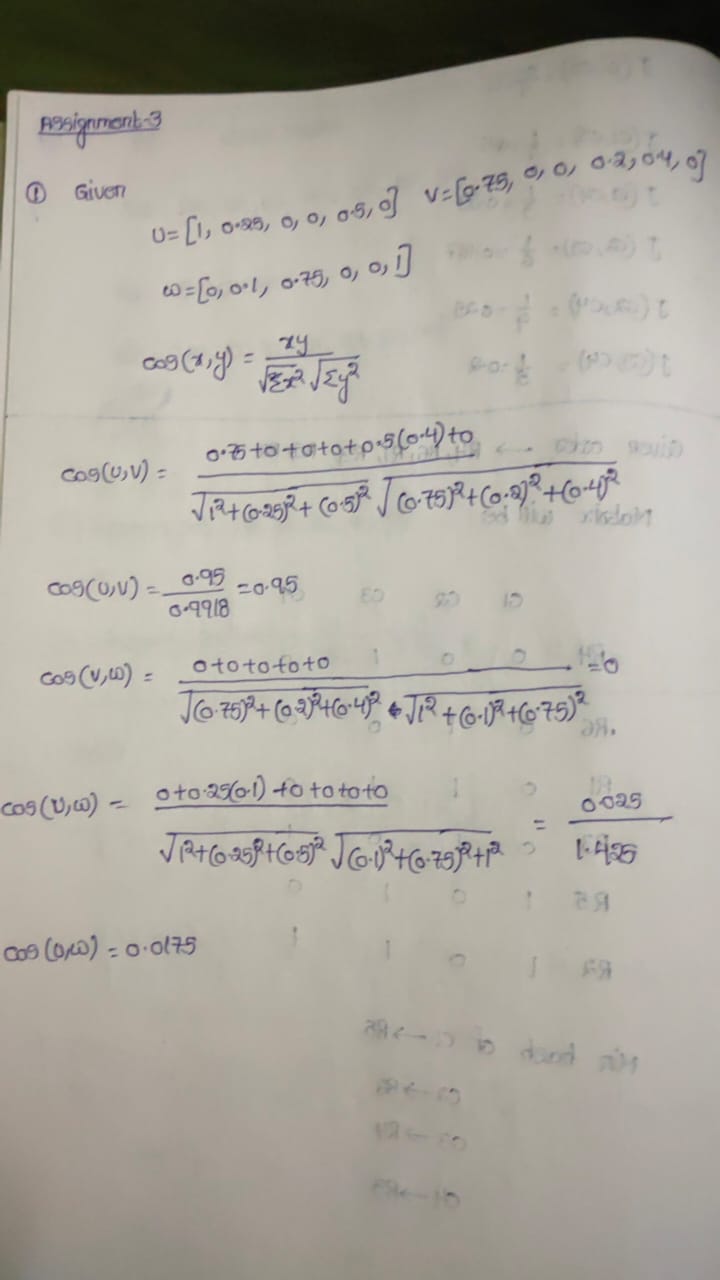 Assignment-3
① Given
U=[1, 0.25, 0, 0, 0.5, 0] V=[0.75, 0, 0, 0.2, 0.4, 0]
ω=[0, 0.1, 0.75, 0, 0, 1]
cos(x,y) = xy / √Σx² √Σy²
cos(U,V) = 0.75+0+0+0+0.5(0.4)+0 / √1²+(0.25)²+(0.5)² √(0.75)²+(0.2)²+(0.4)²
cos(U,V) = 0.95 / 0.9918 = 0.95
cos(V,ω) = 0+0+0+0+0 / √(0.75)²+(0.2)²+(0.4)² √1²+(0.1)²+(0.75)² = 0
cos(U,ω) = 0+0.25(0.1)+0+0+0+0 / √1²+(0.25)²+(0.5)² √(0.1)²+(0.75)²+1² = 0.025 / 1.425
cos(U,ω) = 0.0175